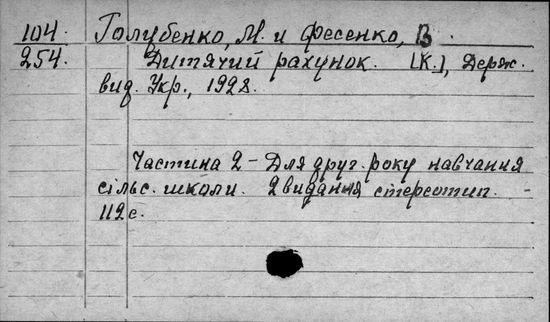 104. Голубенко, М. и Фесенко, В.
254. Дитячий рахунок. [К.], Держ.
вид. Укр., 1928.
Частина 2 – Для друг. року навчання
сільс. школи. 2 видання стереотип.
112 с.